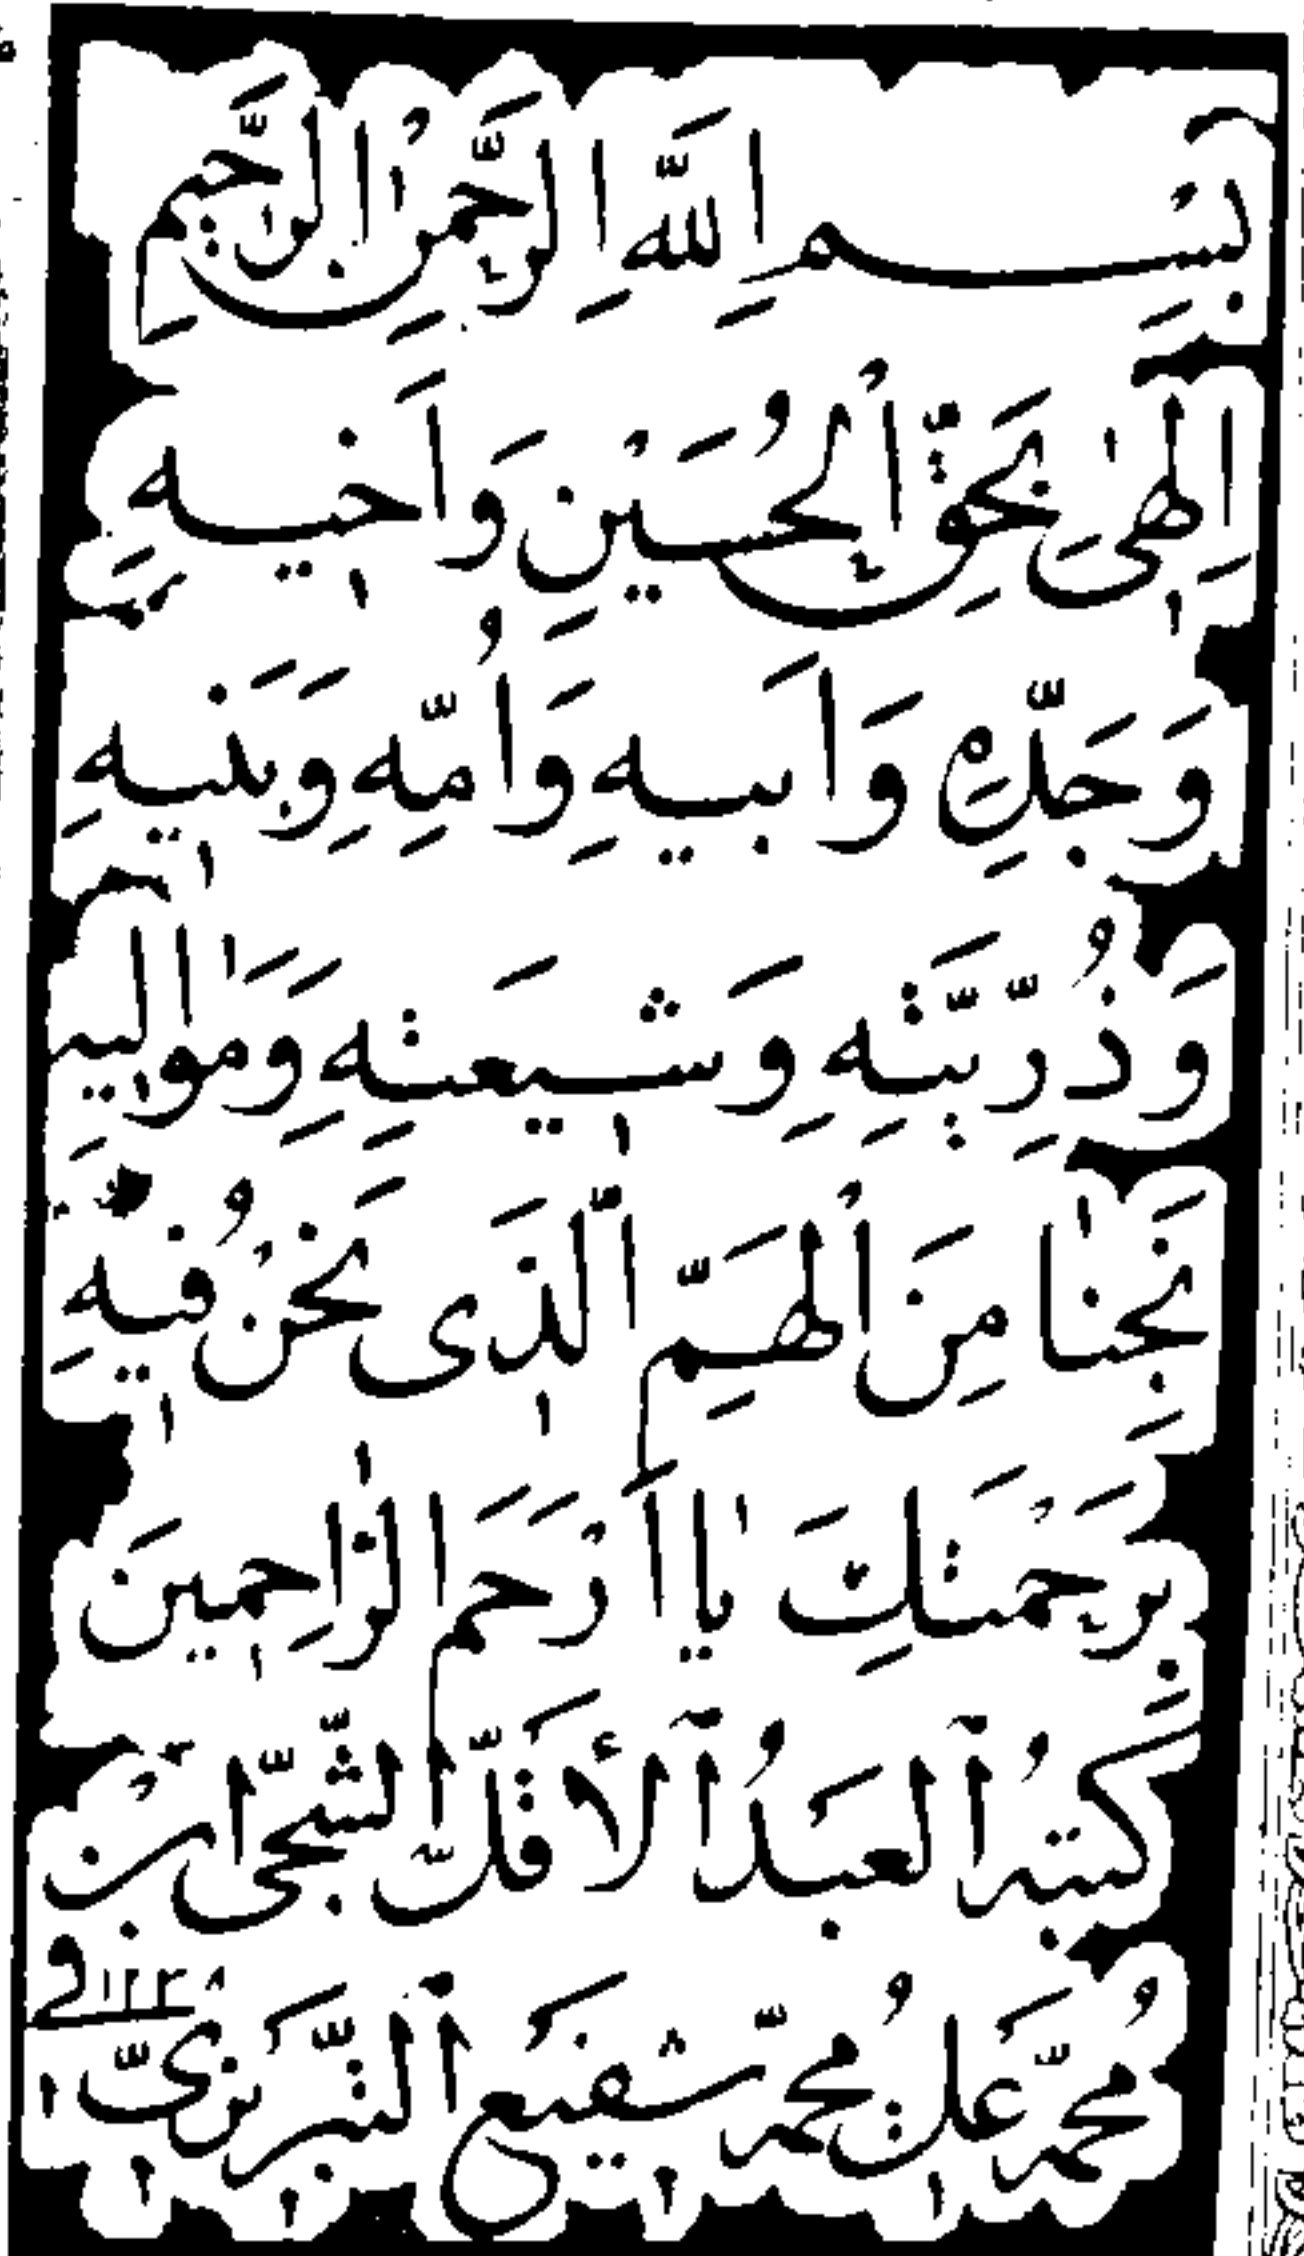 بِسْمِ اللَّهِ الرَّحْمٰنِ الرَّحِيمِ
اِلٰهِى بِحَقِّ الْحُسَيْنِ وَاَخِيهِ
وَجَدِّهِ وَاَبِيهِ وَاُمِّهِ وَبَنِيهِ
وَذُرِّيَّتِهِ وَشِيعَتِهِ وَمَوَالِيهِ
نَجِّنَا مِنَ الْهَمِّ الَّذِى نَحْنُ فِيهِ
بِرَحْمَتِكَ يَا اَرْحَمَ الرَّاحِمِينَ
كتبه العبد الأقل ابن
محمّد على محمّد شفيع التبريزىّ
فى ١٢٢٨